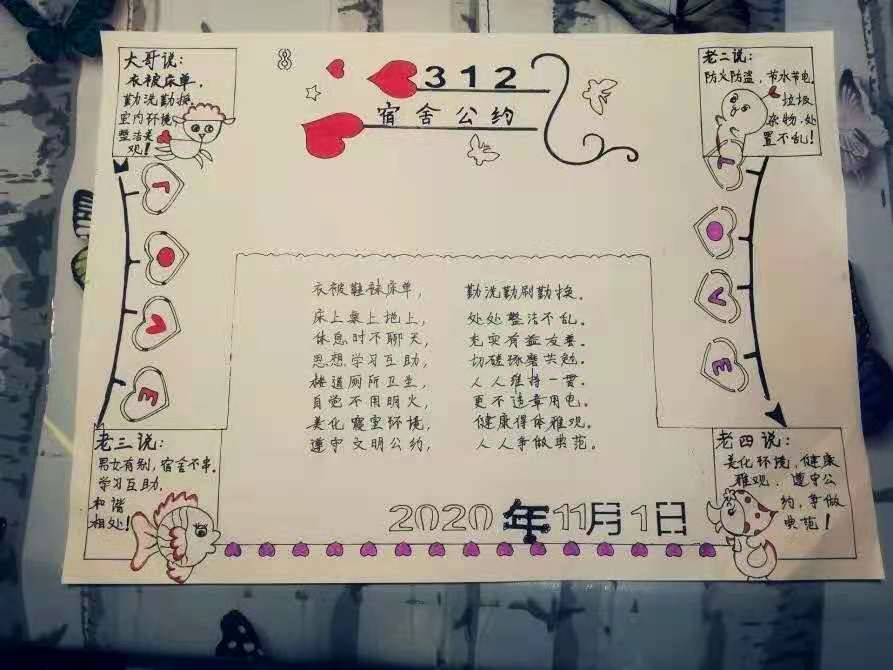 8
312
宿舍公约
大哥说:
衣被床单,
勤洗勤换,
室内环境,
整洁美
观!
老二说:
防火防盗,节水节电,
垃圾
杂物,处
置不乱!
L
O
V
E
L
O
V
E
衣被鞋袜床单, 勤洗勤刷勤换。
床上桌上地上, 处处整洁不乱。
休息时不聊天, 充实有益友善。
思想学习互助, 切磋琢磨共勉。
楼道厕所卫生, 人人维持一贯。
自觉不用明火, 更不违章用电。
美化寝室环境, 健康得体雅观。
遵守文明公约, 人人争做典范。
老三说:
男女有别,宿舍不串。
学习互助,
和谐
相处!
老四说:
美化环境,健康
雅观,遵守公
约,争做
典范!
2020年11月1日